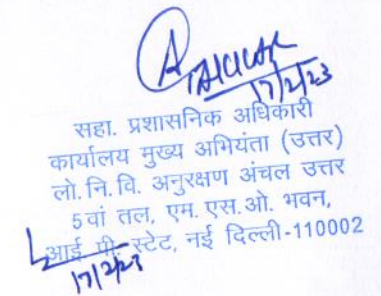 17/2/23
सहा. प्रशासनिक अधिकारी
कार्यालय मुख्य अभियंता (उत्तर)
लो. नि. वि. अनुरक्षण अंचल उत्तर
5वां तल, एम. एस. ओ. भवन,
आई. पी. स्टेट, नई दिल्ली-110002
17/2/23